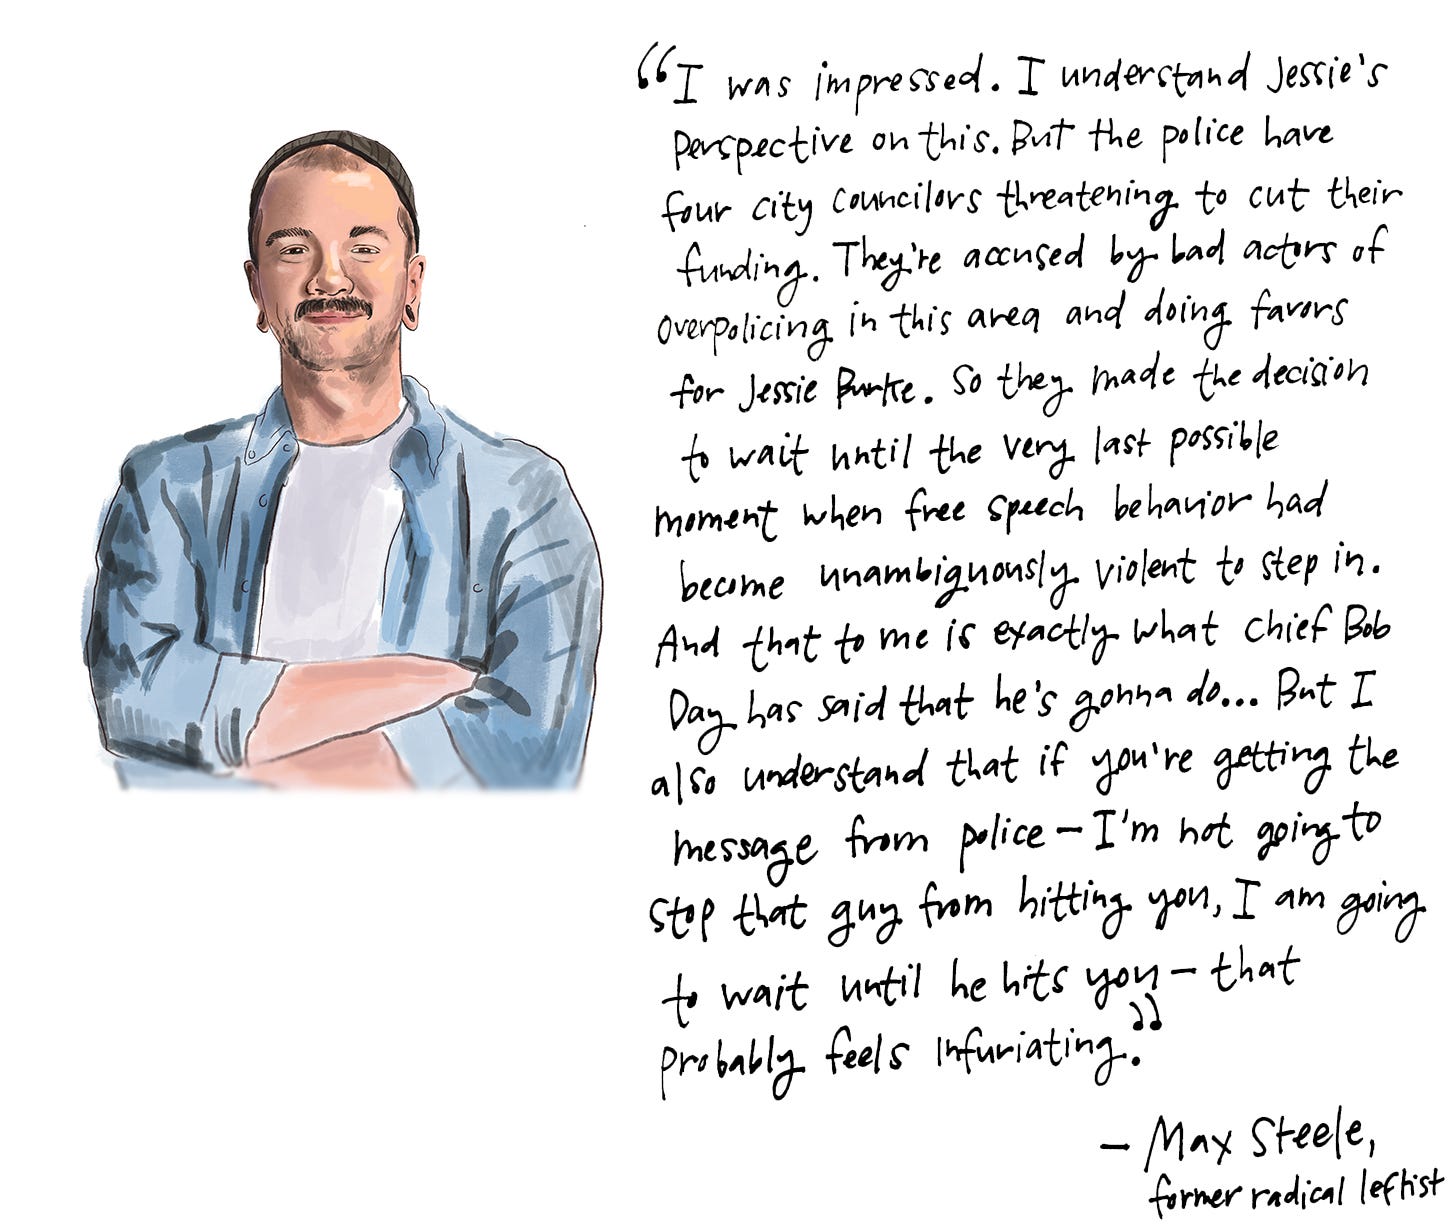 “I was impressed. I understand Jessie's
perspective on this. But the police have
four city councilors threatening to cut their
funding. They're accused by bad actors of
overpolicing in this area and doing favors
for Jessie Burke. So they made the decision
to wait until the very last possible
moment when free speech behavior had
become unambiguously violent to step in.
And that to me is exactly what Chief Bob
Day has said that he's gonna do... But I
also understand that if you're getting the
message from police – I'm not going to
stop that guy from hitting you, I am going
to wait until he hits you – that
probably feels infuriating.”
– Max Steele,
former radical leftist